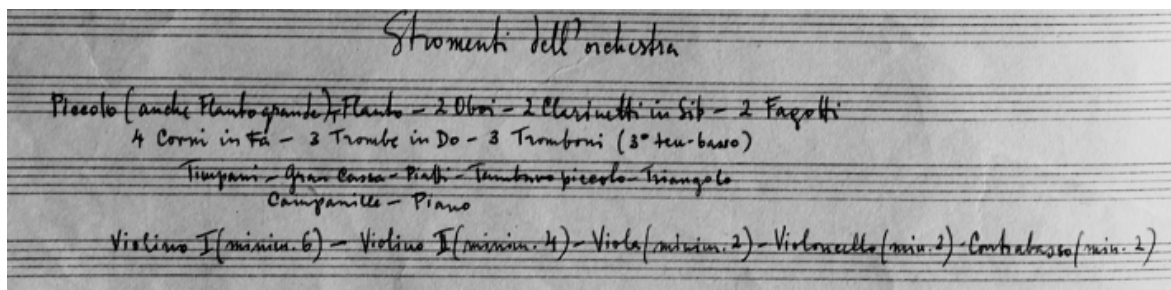 Stromenti dell'orchestra
Piccolo (anche Flauto grande), Flauto - 2 Oboi - 2 Clarinetti in Sib - 2 Fagotti
4 Corni in Fa - 3 Trombe in Do - 3 Tromboni (3° ten-basso)
Timpani - Gran Cassa - Piatti - Tamburo piccolo - Triangolo
Campanille - Piano
Violino I (minim. 6) - Violino II (minim. 4) - Viola (minim. 2) - Violoncello (min. 2) - Contrabasso (min. 2)